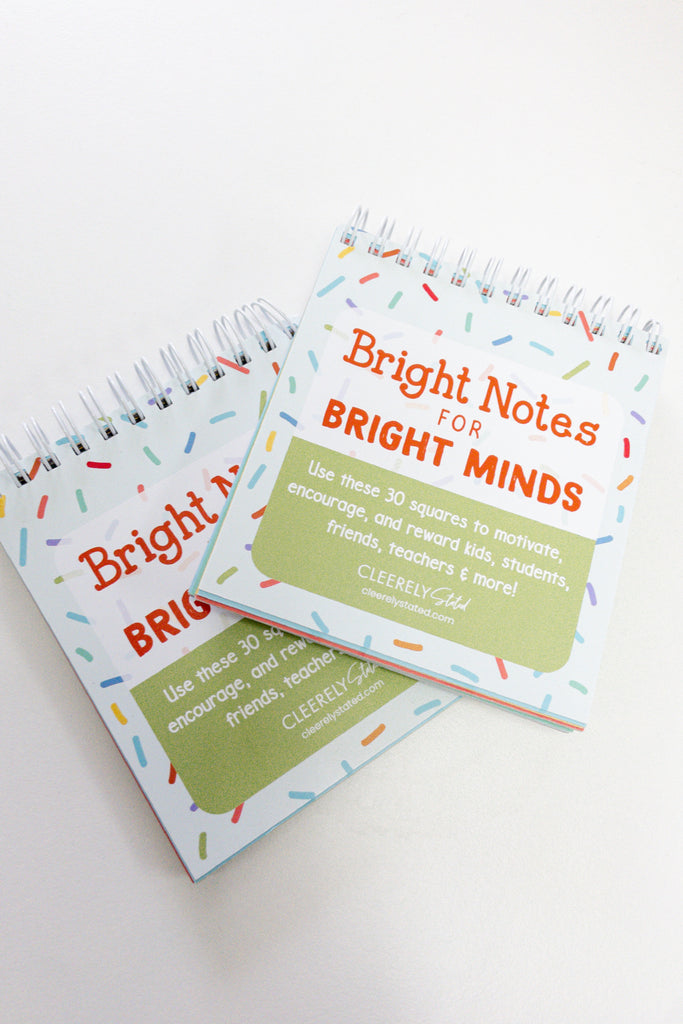 Bright Notes
FOR
BRIGHT MINDS
Use these 30 squares to motivate,
encourage, and reward kids, students,
friends, teachers & more!
CLEERELY Stated
cleerelystated.com
Bright N
BRIG
Use these 30 squ
encourage, and rew
friends, teacher
CLEERELY Stated
cleerelystated.com